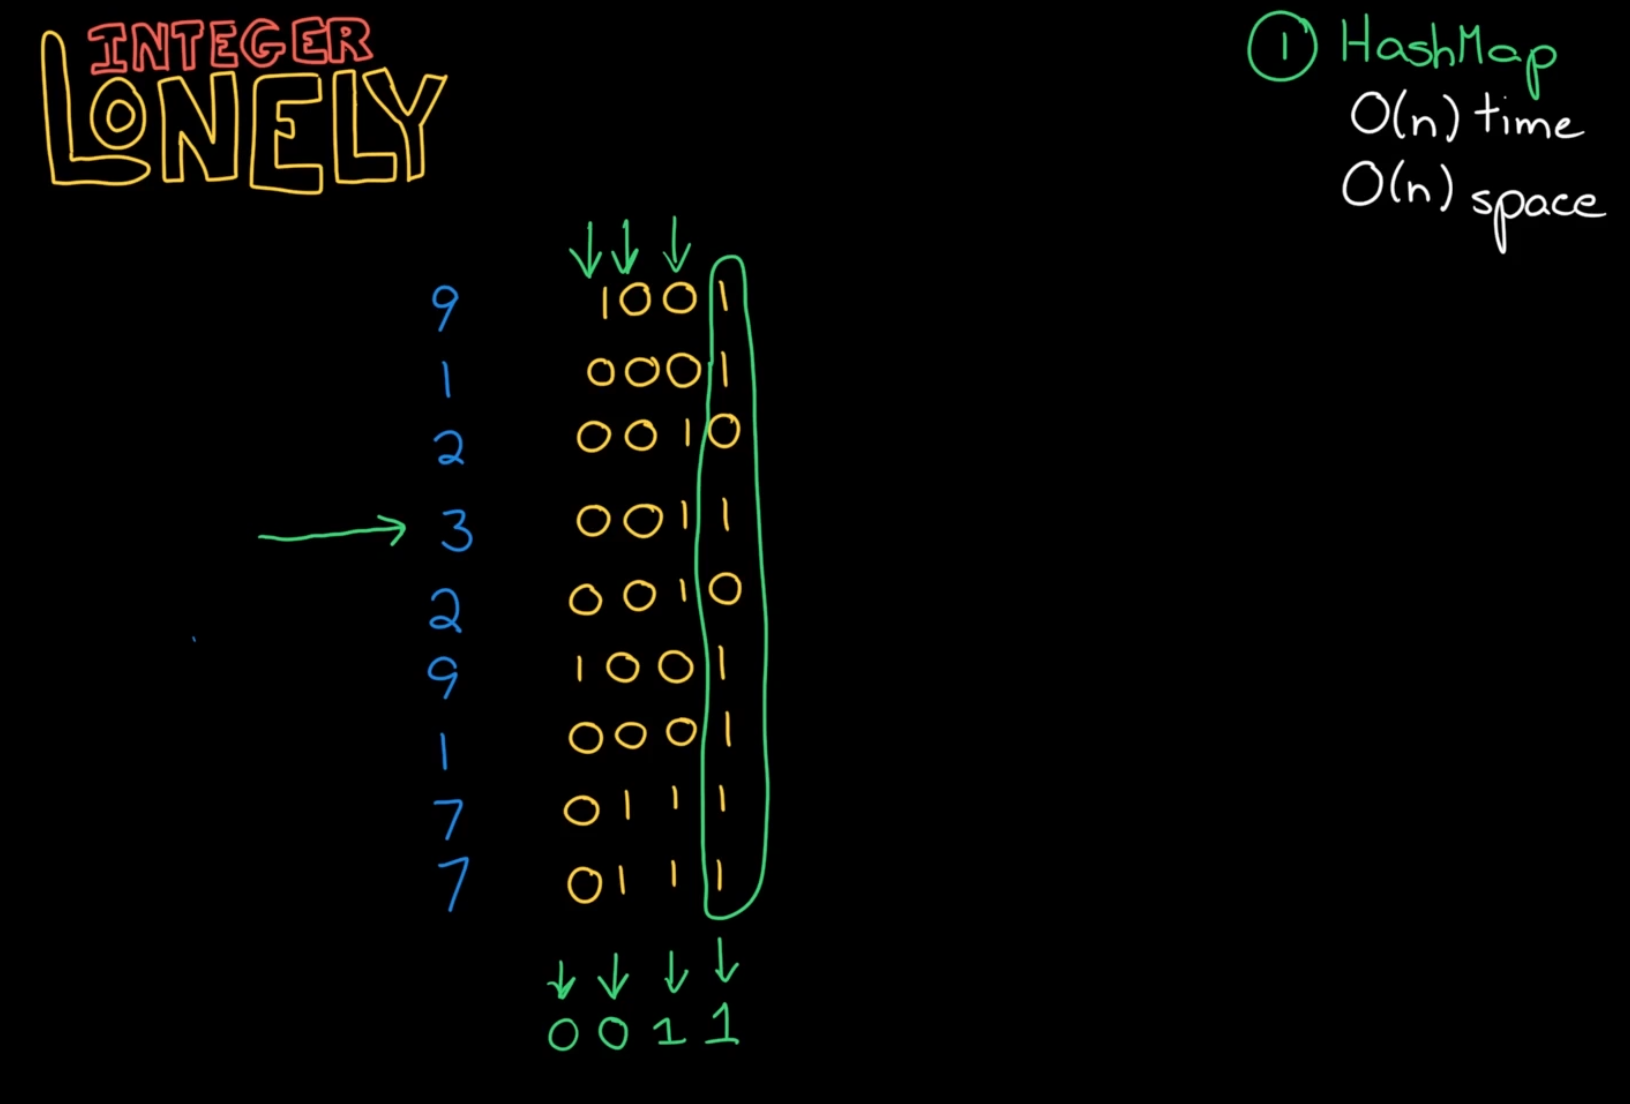 INTEGER
LONELY
① HashMap
O(n) time
O(n) space
9 1001
1 0001
2 0010
3 0011
2 0010
9 1001
1 0001
7 0111
7 0111
0011